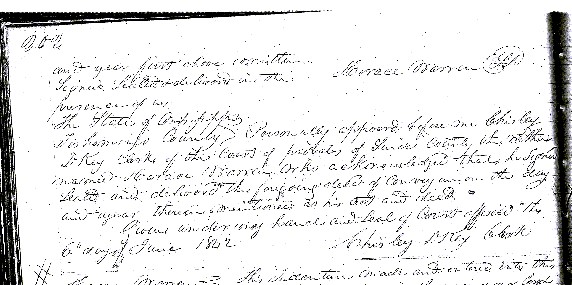 and year first above written
Signed Sealed & delivered in the Horace Warren
presence of us
The State of Mississippi
Tishomingo County Personally appeared before me Chisley
D Key Clerk of the Court of probate of said County the within
named Horace Warren who acknowledged that he signed
Sealed and delivered the foregoing deed of Conveyance on the day
and year therein mentioned as his act and deed
Given under my hand and Seal of Court affixed the
6th day of June 1842 Chisley D Key Clerk
Warren This indenture made and entered into this